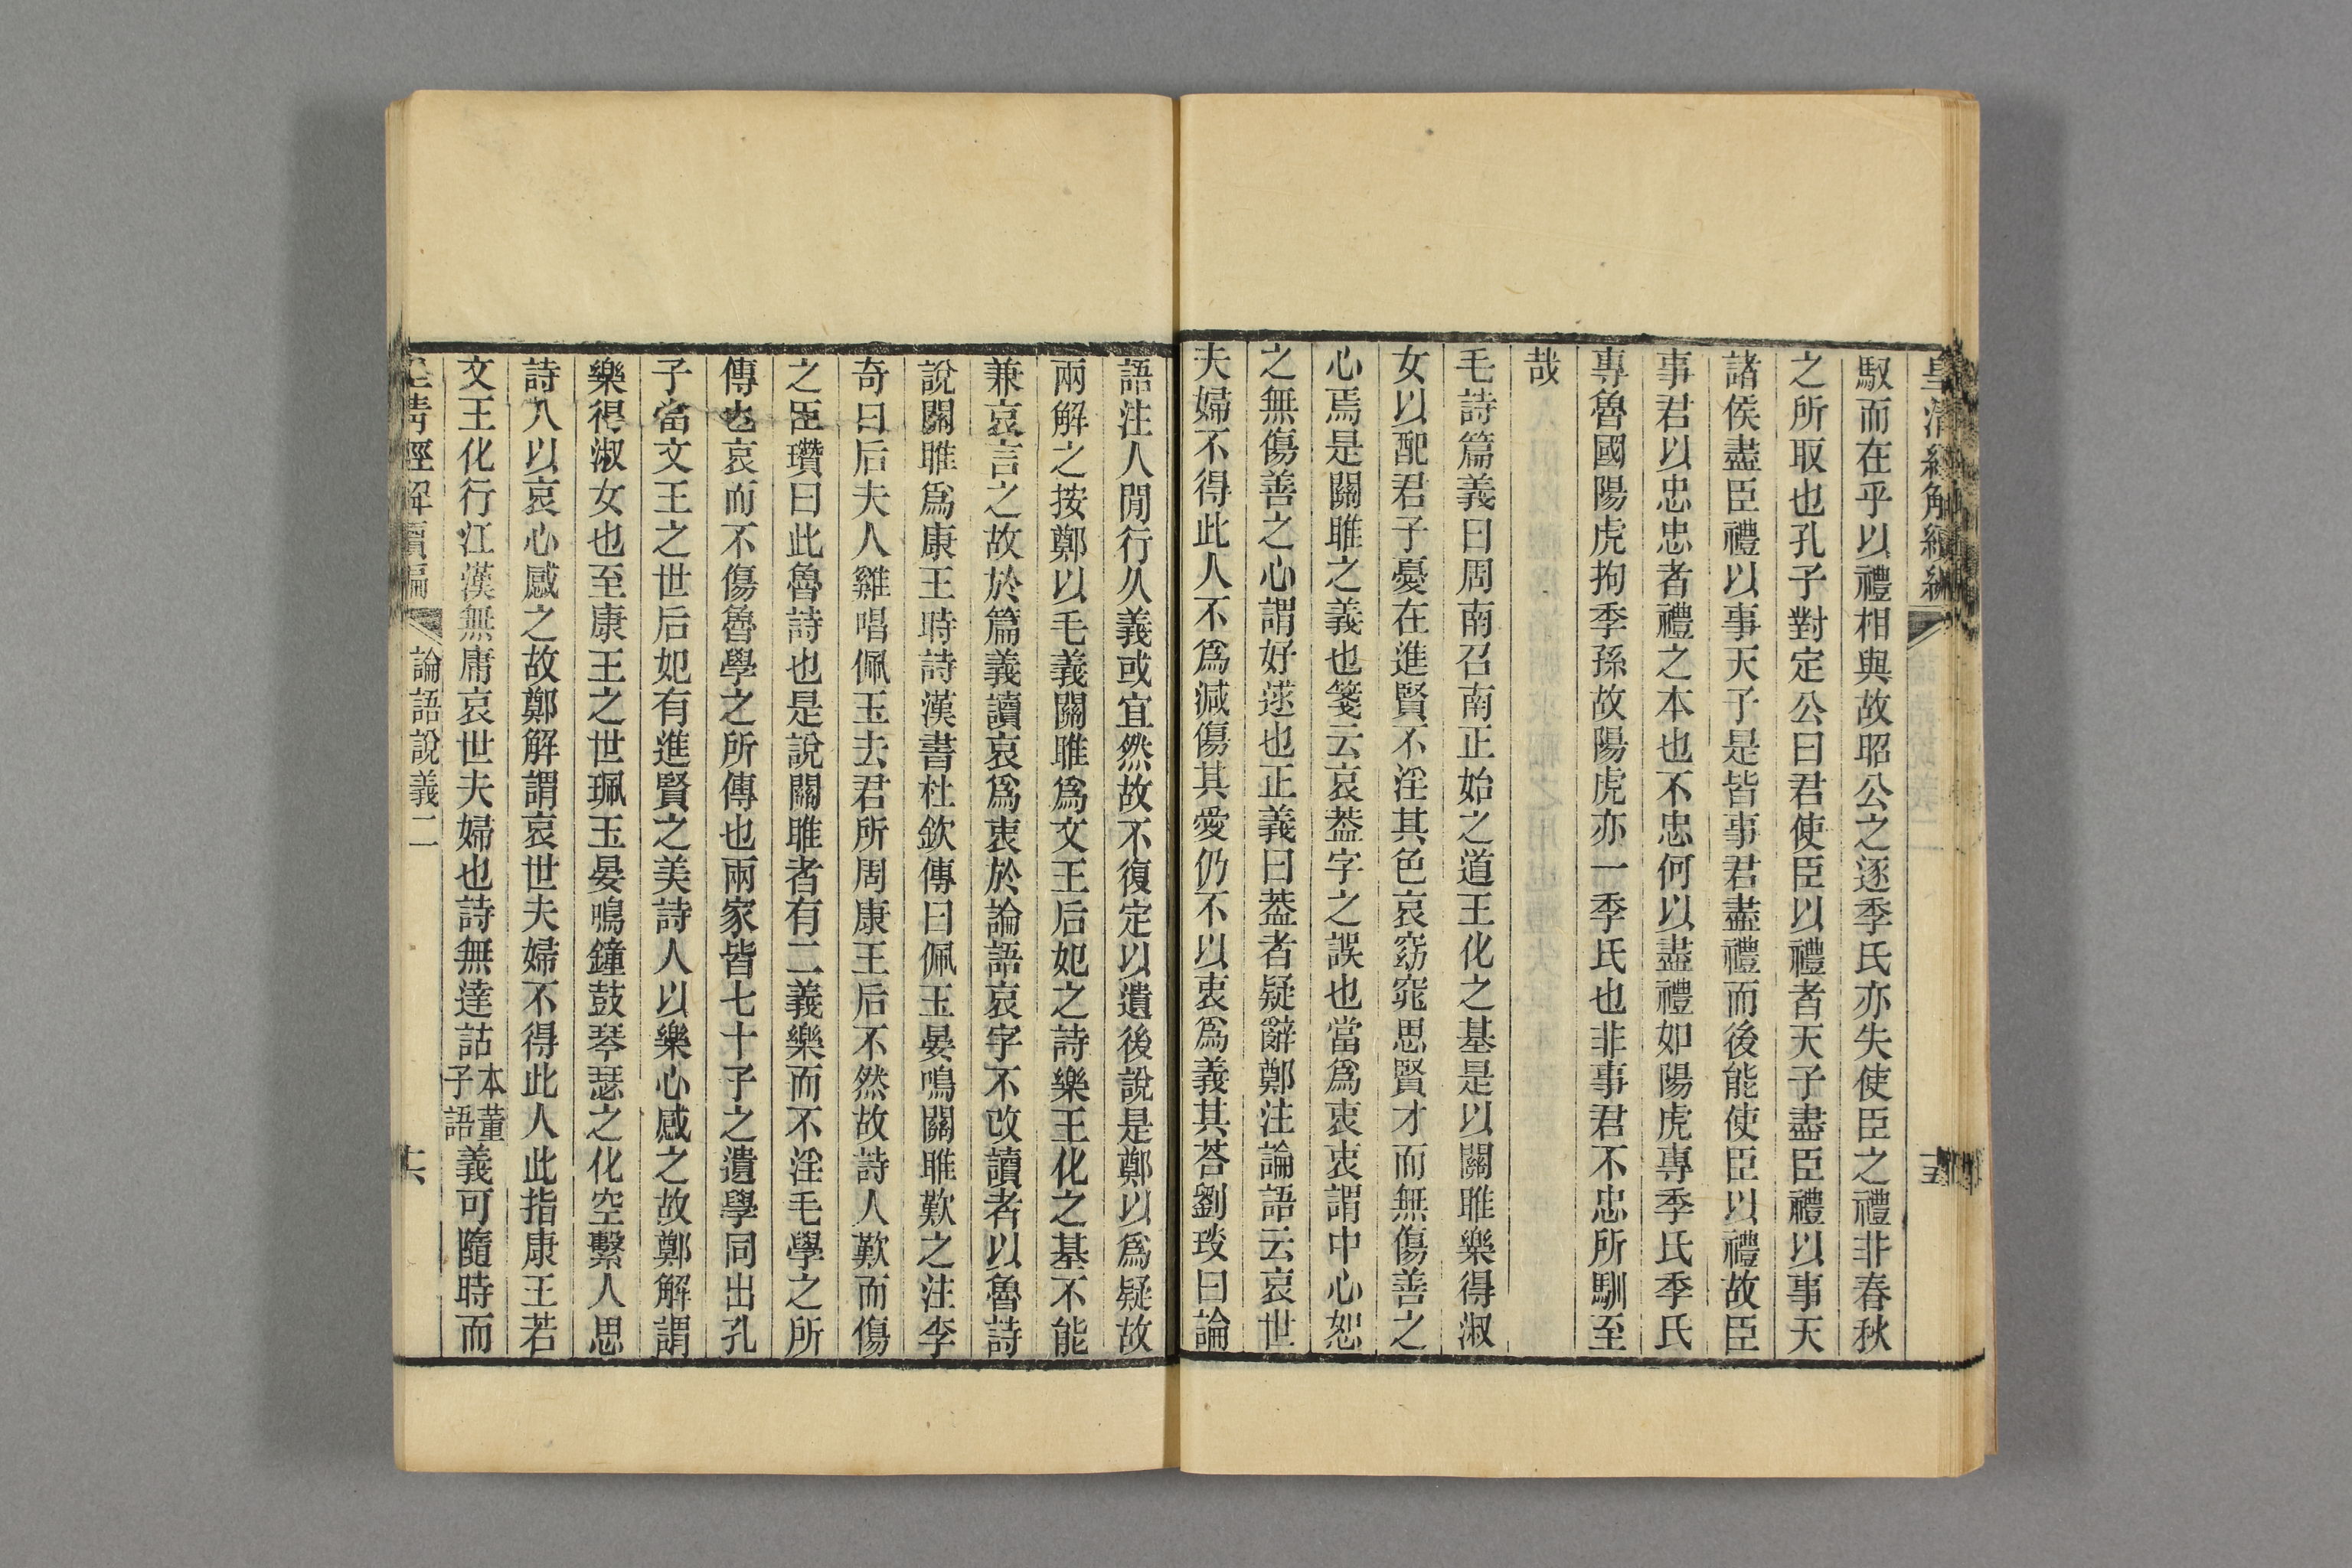 皇清經解續編
十五
馭而在乎以禮相與故昭公之逐季氏亦失使臣之禮非春秋
之所取也孔子對定公曰君使臣以禮者天子盡臣禮以事天
諸侯盡臣禮以事天子是皆事君盡禮而後能使臣以禮故臣
事君以忠忠者禮之本也不忠何以盡禮如陽虎專季氏季氏
專魯國陽虎拘季孫故陽虎亦一季氏也非事君不忠所馴至
哉
毛詩篇義曰周南召南正始之道王化之基是以關雎樂得淑
女以配君子憂在進賢不淫其色哀窈窕思賢才而無傷善之
心焉是關雎之義也箋云哀葢字之誤也當爲衷衷謂中心恕
之無傷善之心謂好逑也正義曰葢者疑辭鄭注論語云哀世
夫婦不得此人不爲減傷其愛仍不以衷爲義其荅劉琰曰論
語注人閒行久義或宜然故不復定以遺後說是鄭以爲疑故
兩解之按鄭以毛義關雎爲文王后妃之詩樂王化之基不能
兼哀言之故於篇義讀哀爲衷於論語哀字不改讀者以魯詩
說關雎爲康王時詩漢書杜欽傳曰佩玉晏鳴關雎歎之注李
奇曰后夫人雞唱佩玉去君所周康王后不然故詩人歎而傷
之臣瓚曰此魯詩也是說關雎者有二義樂而不淫毛學之所
傳也哀而不傷魯學之所傳也兩家皆七十子之遺學同出孔
子當文王之世后妃有進賢之美詩人以樂心感之故鄭解謂
樂得淑女也至康王之世珮玉晏鳴鐘鼓琴瑟之化空繫人思
詩人以哀心感之故鄭解謂哀世夫婦不得此人此指康王若
文王化行江漢無庸哀世夫婦也詩無達詁本董子語義可隨時而
皇清經解續編
論語說義二
十六